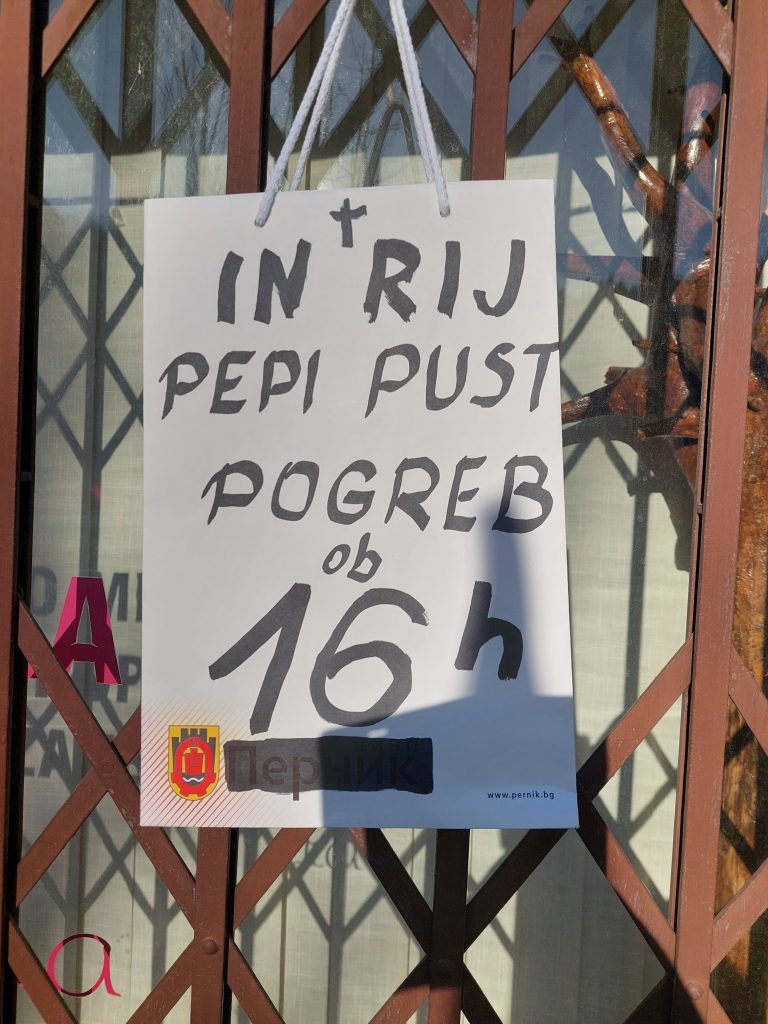 IN RIJ
PEPI PUST
POGREB
ob
16h
Перник
www.pernik.bg
A
a